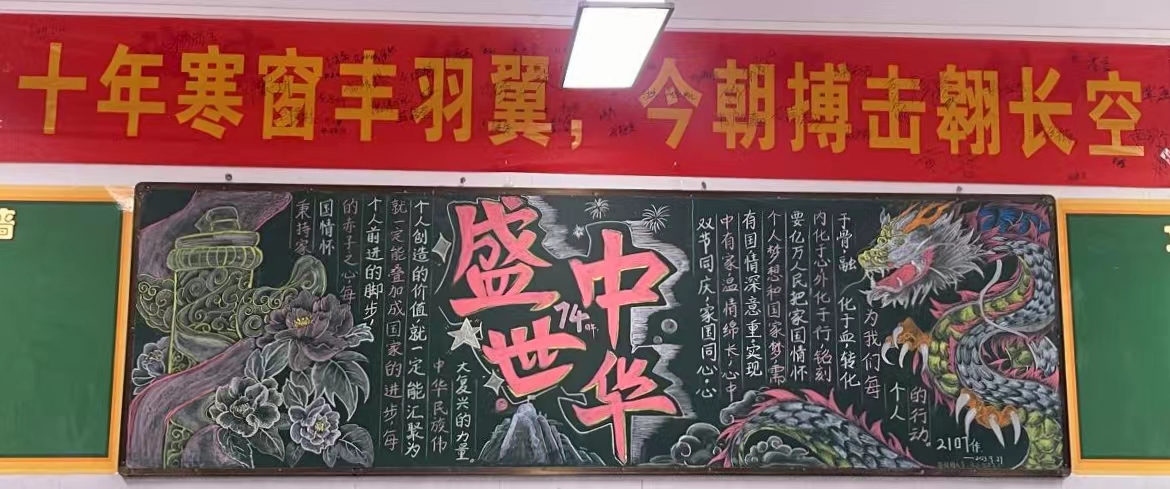 十年寒窗丰羽翼，今朝搏击翱长空
秉持家
国情怀
的赤子之心，每
个人前进的脚步，
就一定能叠加成国家的进步，每
个人创造的价值，就一定能汇聚为
中华民族伟
大复兴的力量。
盛世
74年
中华
双节同庆，家国同心，心
中有家，温情绵长，心中
有国，情深意重，实现
个人梦想和国家梦，需
要亿万人民把家国情怀
内化于心，外化于行，铭刻
于骨，融
化于血，转化
为我们每
个人
的行动。
2107作